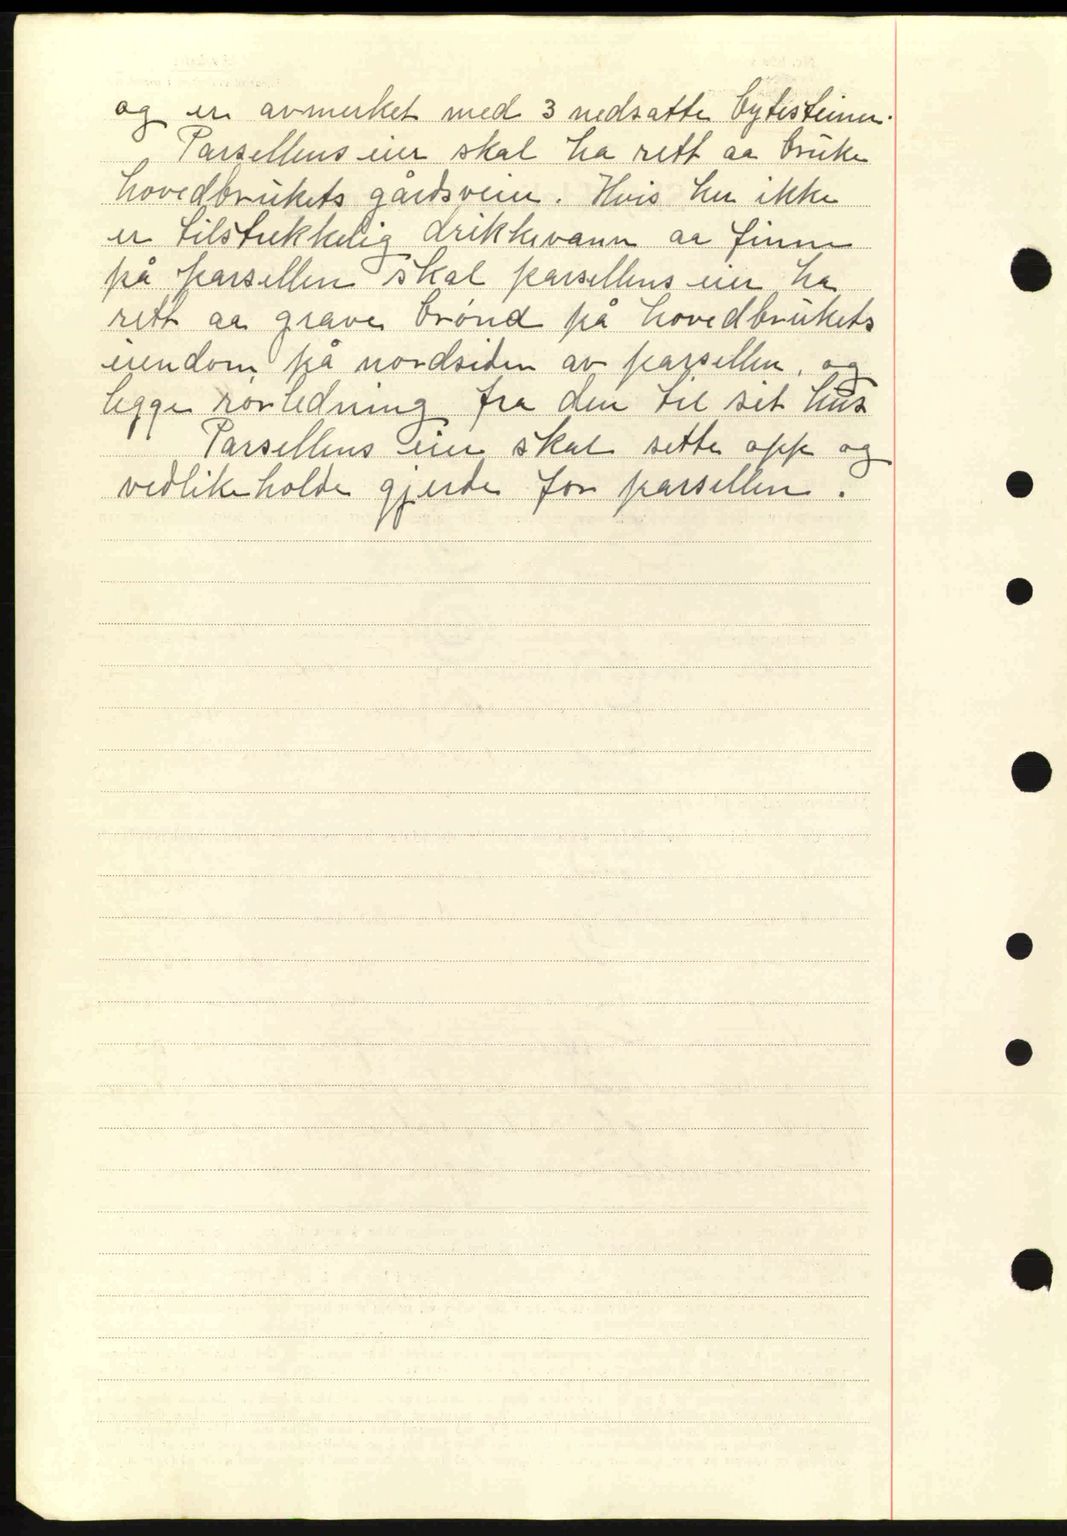 og er avmerket med 3 nedsatte bytesteiner.
Parsellens eier skal ha rett aa bruke
hovedbrukets gårdsveier. Hvis her ikke
er tilstrekkelig drikkevann aa finne
på parsellen skal parsellens eier ha
rett aa grave brønd på hovedbrukets
eiendom på nordsiden av parsellen, og
legge rørledning fra den til sit hus
Parsellens eier skal sette opp og
vedlikeholde gjerde for parsellen.